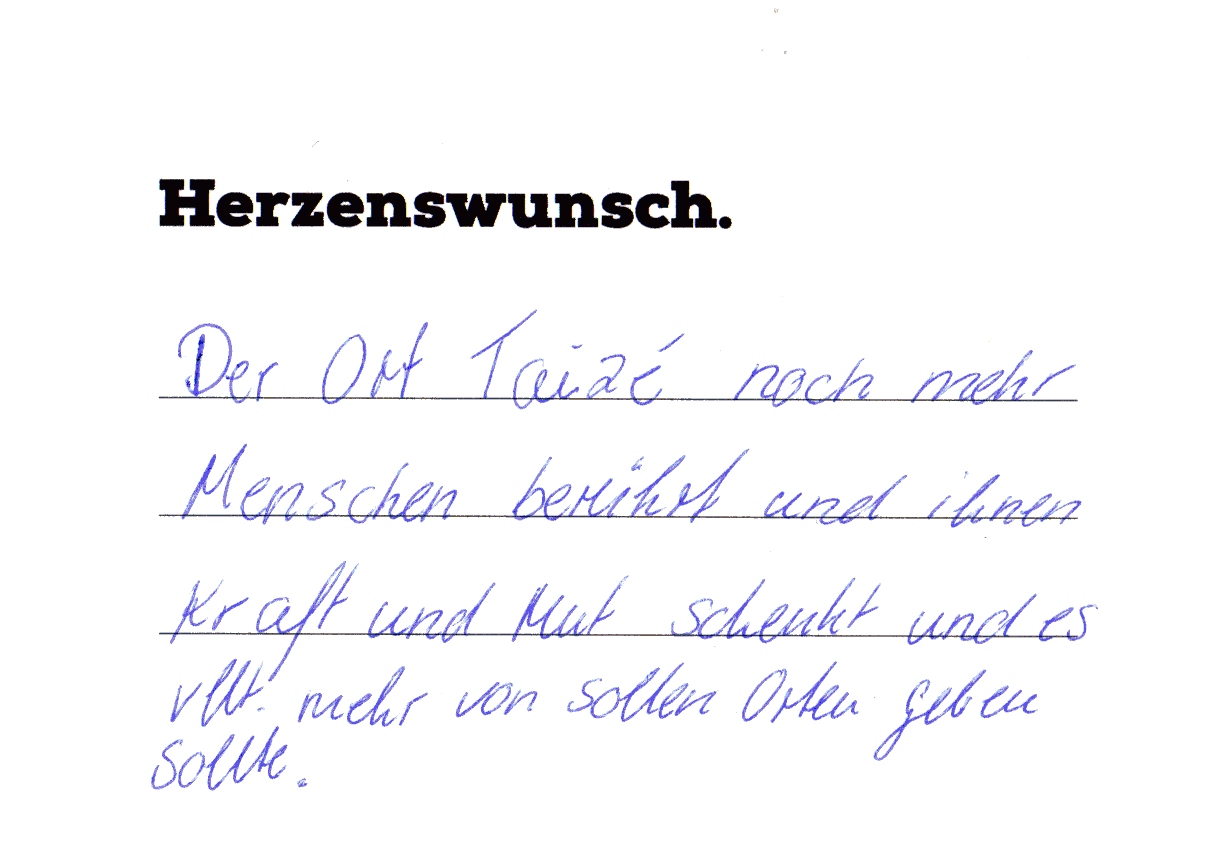 Herzenswunsch.
Der Ort Taizé noch mehr
Menschen berührt und ihnen
Kraft und Mut schenkt und es
vllt. mehr von sollen Orten geben
sollte.